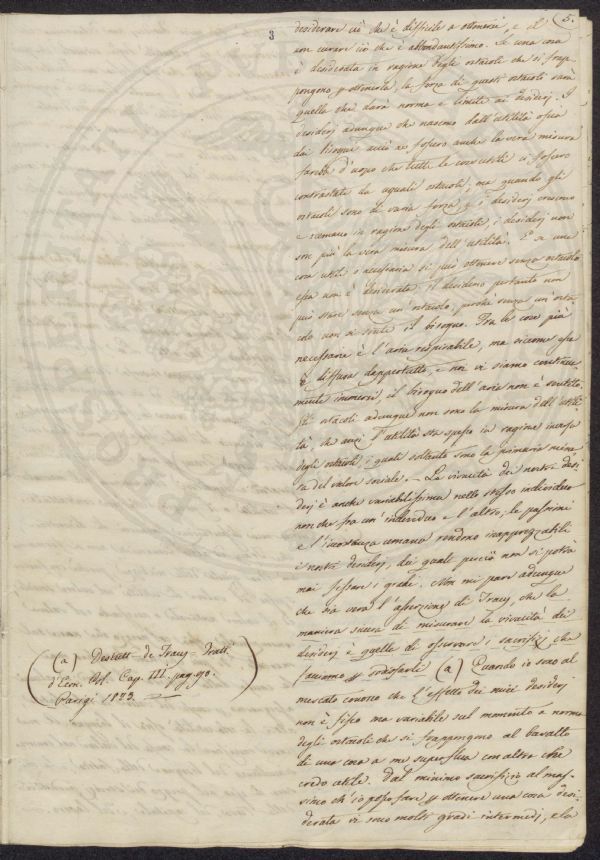 5.
3
desiderare ciò che è difficile a ottenersi, e il
non curare ciò che è abbondantissimo. Se una cosa
è desiderata in ragione degli ostacoli che si frap-
pongono p ottenerla, la forza di questi ostacoli sarà
quella che darà norma e limite ai desiderj. I
desiderj adunque che nascono dall'utilità ossia
dai bisogni acciò ne fossero anche la vera misura
farebbe d'uopo che tutte le cose utili ci fossero
contrastate da uguali ostacoli; ma quando gli
ostacoli sono di varia forza, e i desiderj crescono
e scemano in ragione degli ostacoli, i desiderj non
son più la vera misura dell'utilità. E se una
cosa utile o necessaria si può ottenere senza ostacolo
essa non è desiderata; il desiderio pertanto non
può stare senza un'ostacolo, perchè senza un'osta-
colo non si sente il bisogno. Tra le cose più
necessarie è l'aria respirabile, ma siccome essa
è diffusa dappertutto, e noi vi siamo continua-
mente immersi, il bisogno dell'aria non è sentito.
Gli ostacoli adunque non sono la misura dell'utili-
tà, chè anzi l'utilità sta spesso in ragione inversa
degli ostacoli, i quali soltanto sono la primaria misu-
ra del valore sociale. — La vivacità dei nostri desi-
derj è anche variabilissima nello stesso individuo
non che fra un'individuo e l'altro; le passioni
e l'incostanza umana rendono inapprezzabili
i nostri desiderj, dei quali perciò non si potrà
mai fissare i gradi. Non mi pare adunque
che sia vera l'asserzione di Tracy, che la
maniera sicura di misurare la vivacità dei
desiderj è quella di osservare i sacrifizj che
facciamo p soddisfarli (a) Quando io sono al
mercato conosco che l'effetto dei miei desiderj
non è fisso ma variabile sul momento a norma
degli ostacoli che si frappongono al baratto
di una cosa a me superflua con altra che
credo utile. Dal minimo sacrifizio al mas-
simo ch'io posso fare p ottenere una cosa desi-
derata vi sono molti gradi intermedj, e la
(a) Destutt - de Tracy - Tratt.
d'Econ. Pol. Cap. III. pag. 90.
Parigi 1823.